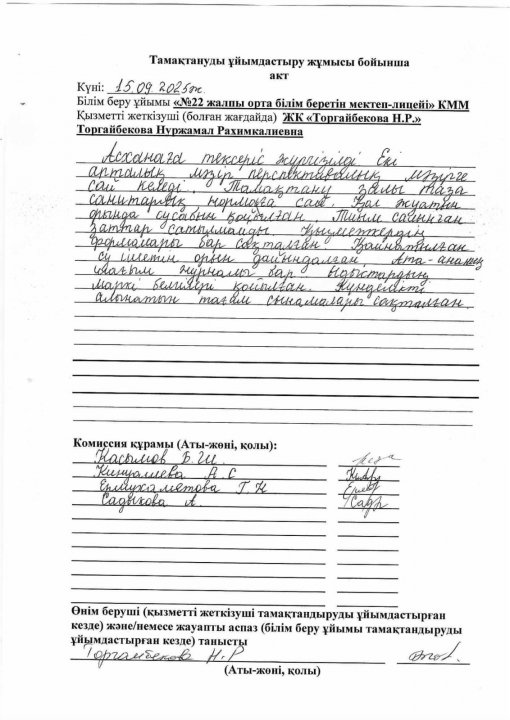 Тамақтануды ұйымдастыру жұмысы бойынша
акт
Күні: 15.09.2025ж
Білім беру ұйымы «№22 жалпы орта білім беретін мектеп-лицейі» КММ
Қызметті жеткізуші (болған жағдайда) ЖК «Торгайбекова Н.Р.»
Торгайбекова Нуржамал Рахимкалиевна
Асханаға тексеріс жүргізілді Екі
апталық мәзір перспективалық мәзірге
сай келеді. Тамақтану залы таза
санитарлық нормаға сай. Қол жуатын
орында сусабын қойылған. Тиым салынған
заттар сатылмайды. Қызметтердің
формалары бар сақталған. Қайнатылған
су ішетін орын дайындалған. Ата-ананың
шағым журналы бар. Ыдыстардың
маркі белгілері қойылған. Күнделікті
алынатын тағам сынамалары сақталған.
Комиссия құрамы (Аты-жөні, қолы):
Касымов Б.Ш.
Кинуалиева А.С
Ермухаметова Г.Н
Садыкова А.
Өнім беруші (қызметті жеткізуші тамақтандыруды ұйымдастырған
кезде) және/немесе жауапты аспаз (білім беру ұйымы тамақтандыруды
ұйымдастырған кезде) танысты
Торгамбекова Н.Р
(Аты-жөні, қолы)